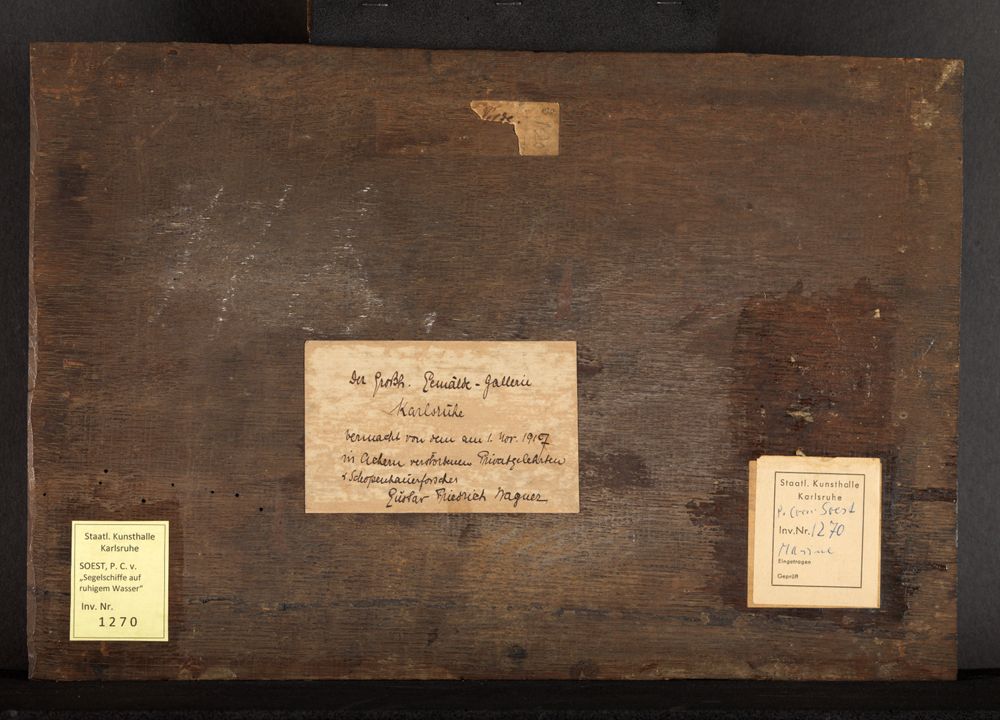 Der Großh. Gemälde-Gallerie
Karlsruhe
vermacht von dem am 1. Nov. 1917
in Achern verstorbenen Privatgelehrten
& Schopenhauerforscher
Gustav Friedrich Wagner
Staatl. Kunsthalle
Karlsruhe
SOEST, P. C. v.
„Segelschiffe auf
ruhigem Wasser“
Inv. Nr.
1270
Staatl. Kunsthalle
Karlsruhe
P. C. van Soest
Inv.Nr. 1270
Marine
Eingetragen
Geprüft